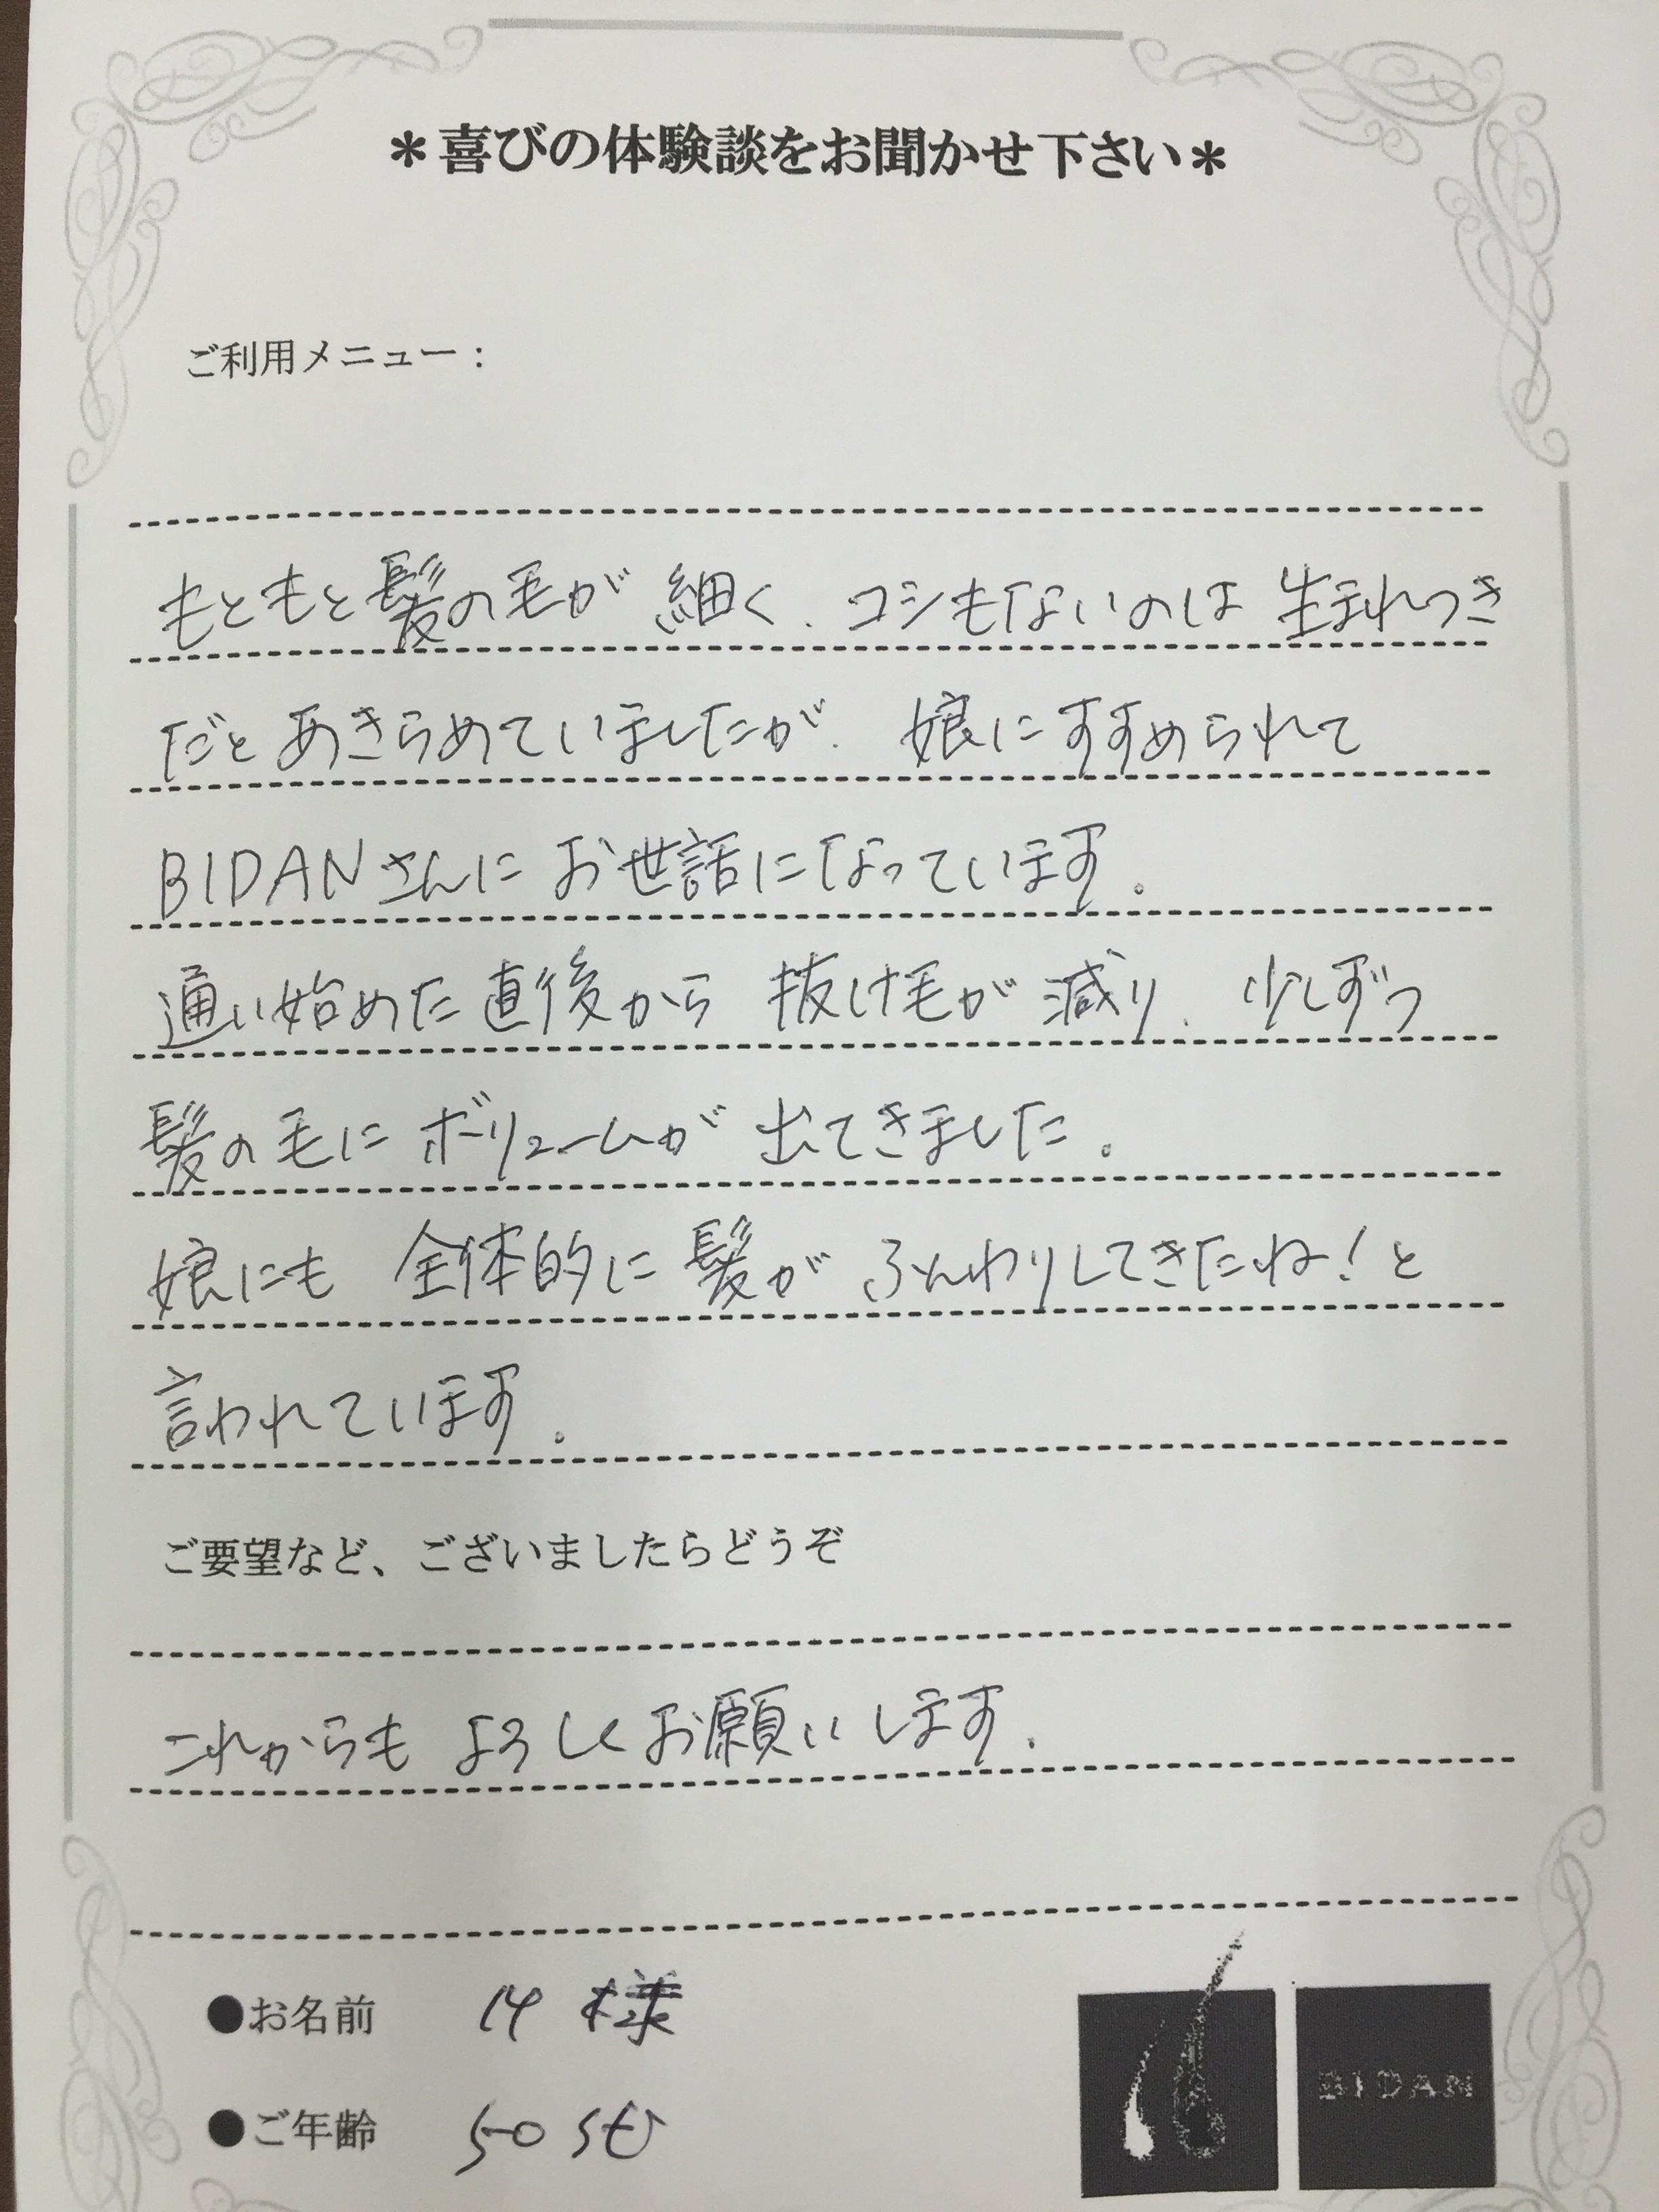 ＊喜びの体験談をお聞かせ下さい＊
ご利用メニュー：
もともと髪の毛が 細く、コシもないのは 生まれつき
だと あきらめていましたが、 娘にすすめられて
BIDANさんに お世話になっています。
通い始めた直後から 抜け毛が 減り、少しずつ
髪の毛に ボリュームが 出てきました。
娘にも 全体的に 髪が ふんわりしてきたね！と
言われています。
ご要望など、ございましたらどうぞ
これからも よろしくお願いします。
●お名前 様
●ご年齢 50代
BIDAN